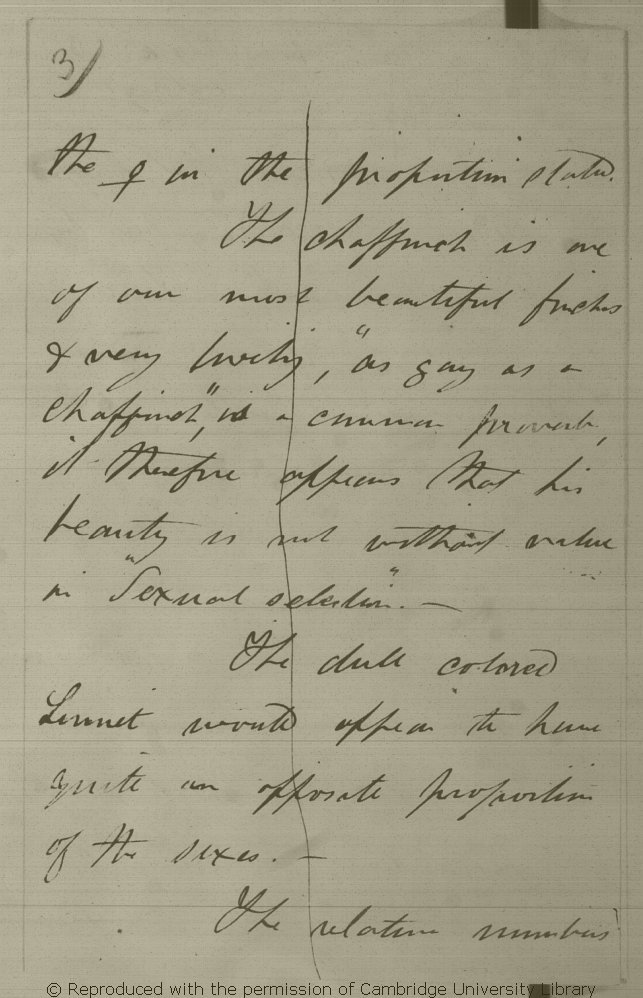 3)
the ♀ in the proportion stated.
The chaffinch is one
of our most beautiful finches
& very lively, "as gay as a
chaffinch", is a common proverb,
it therefore appears that his
beauty is not without value
in "Sexual selection". —
The dull colored
Linnet would appear to have
quite an opposite proportion
of the sexes. —
The relative numbers
© Reproduced with the permission of Cambridge University Library